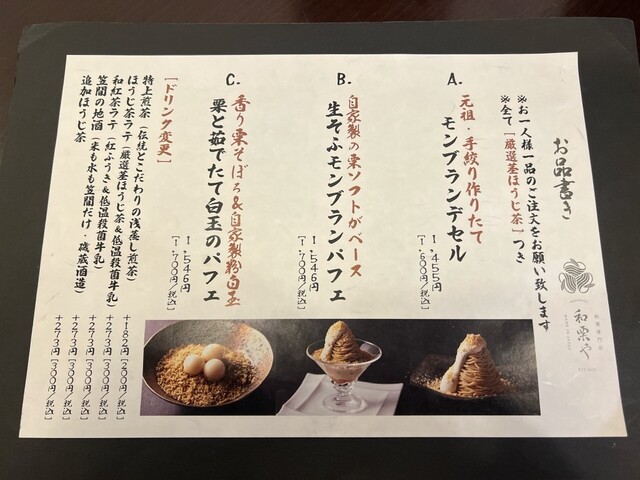 お品書き
※お一人様一品のご注文をお願い致します
※全て［厳選茎ほうじ茶］つき
A.
元祖・手絞り作りたて
モンブランデセル
1,455円
［1,600円/税込］
B.
自家製の栗ソフトがベース
生そふモンブランパフェ
1,546円
［1,700円/税込］
C.
香り栗そぼろ&自家製粉白玉
栗と茹でたて白玉のパフェ
1,546円
［1,700円/税込］
［ドリンク変更］
特上煎茶（伝統とこだわりの浅蒸し煎茶）
+182円［200円/税込］
ほうじ茶ラテ（厳選茎ほうじ茶&低温殺菌牛乳）
+273円［300円/税込］
和紅茶ラテ（紅ふうき&低温殺菌牛乳）
+273円［300円/税込］
笠間の地酒（米も水も笠間だけ・磯蔵酒造）
+273円［300円/税込］
追加ほうじ茶
+273円［300円/税込］
和栗や